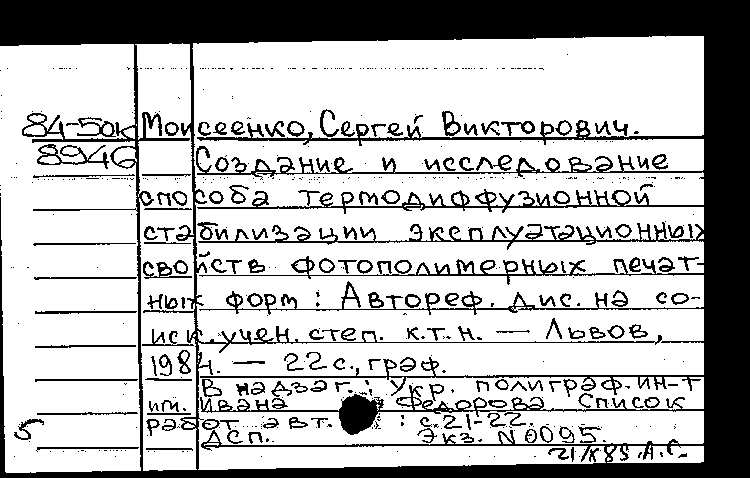 84-50к Моисеенко, Сергей Викторович.
8946 Создание и исследование
способа термодиффузионной
стабилизации эксплуатационных
свойств фотополимерных печат-
ных форм : Автореф. дис. на со-
иск. учен. степ. к.т.н. — Львов,
1984. — 22 с., граф.
В надзаг.: Укр. полиграф. ин-т
им. Ивана Федорова. Список
работ авт. : с. 21-22.
5 ДСП. Экз. N 0095.
21/X 85. А.С.